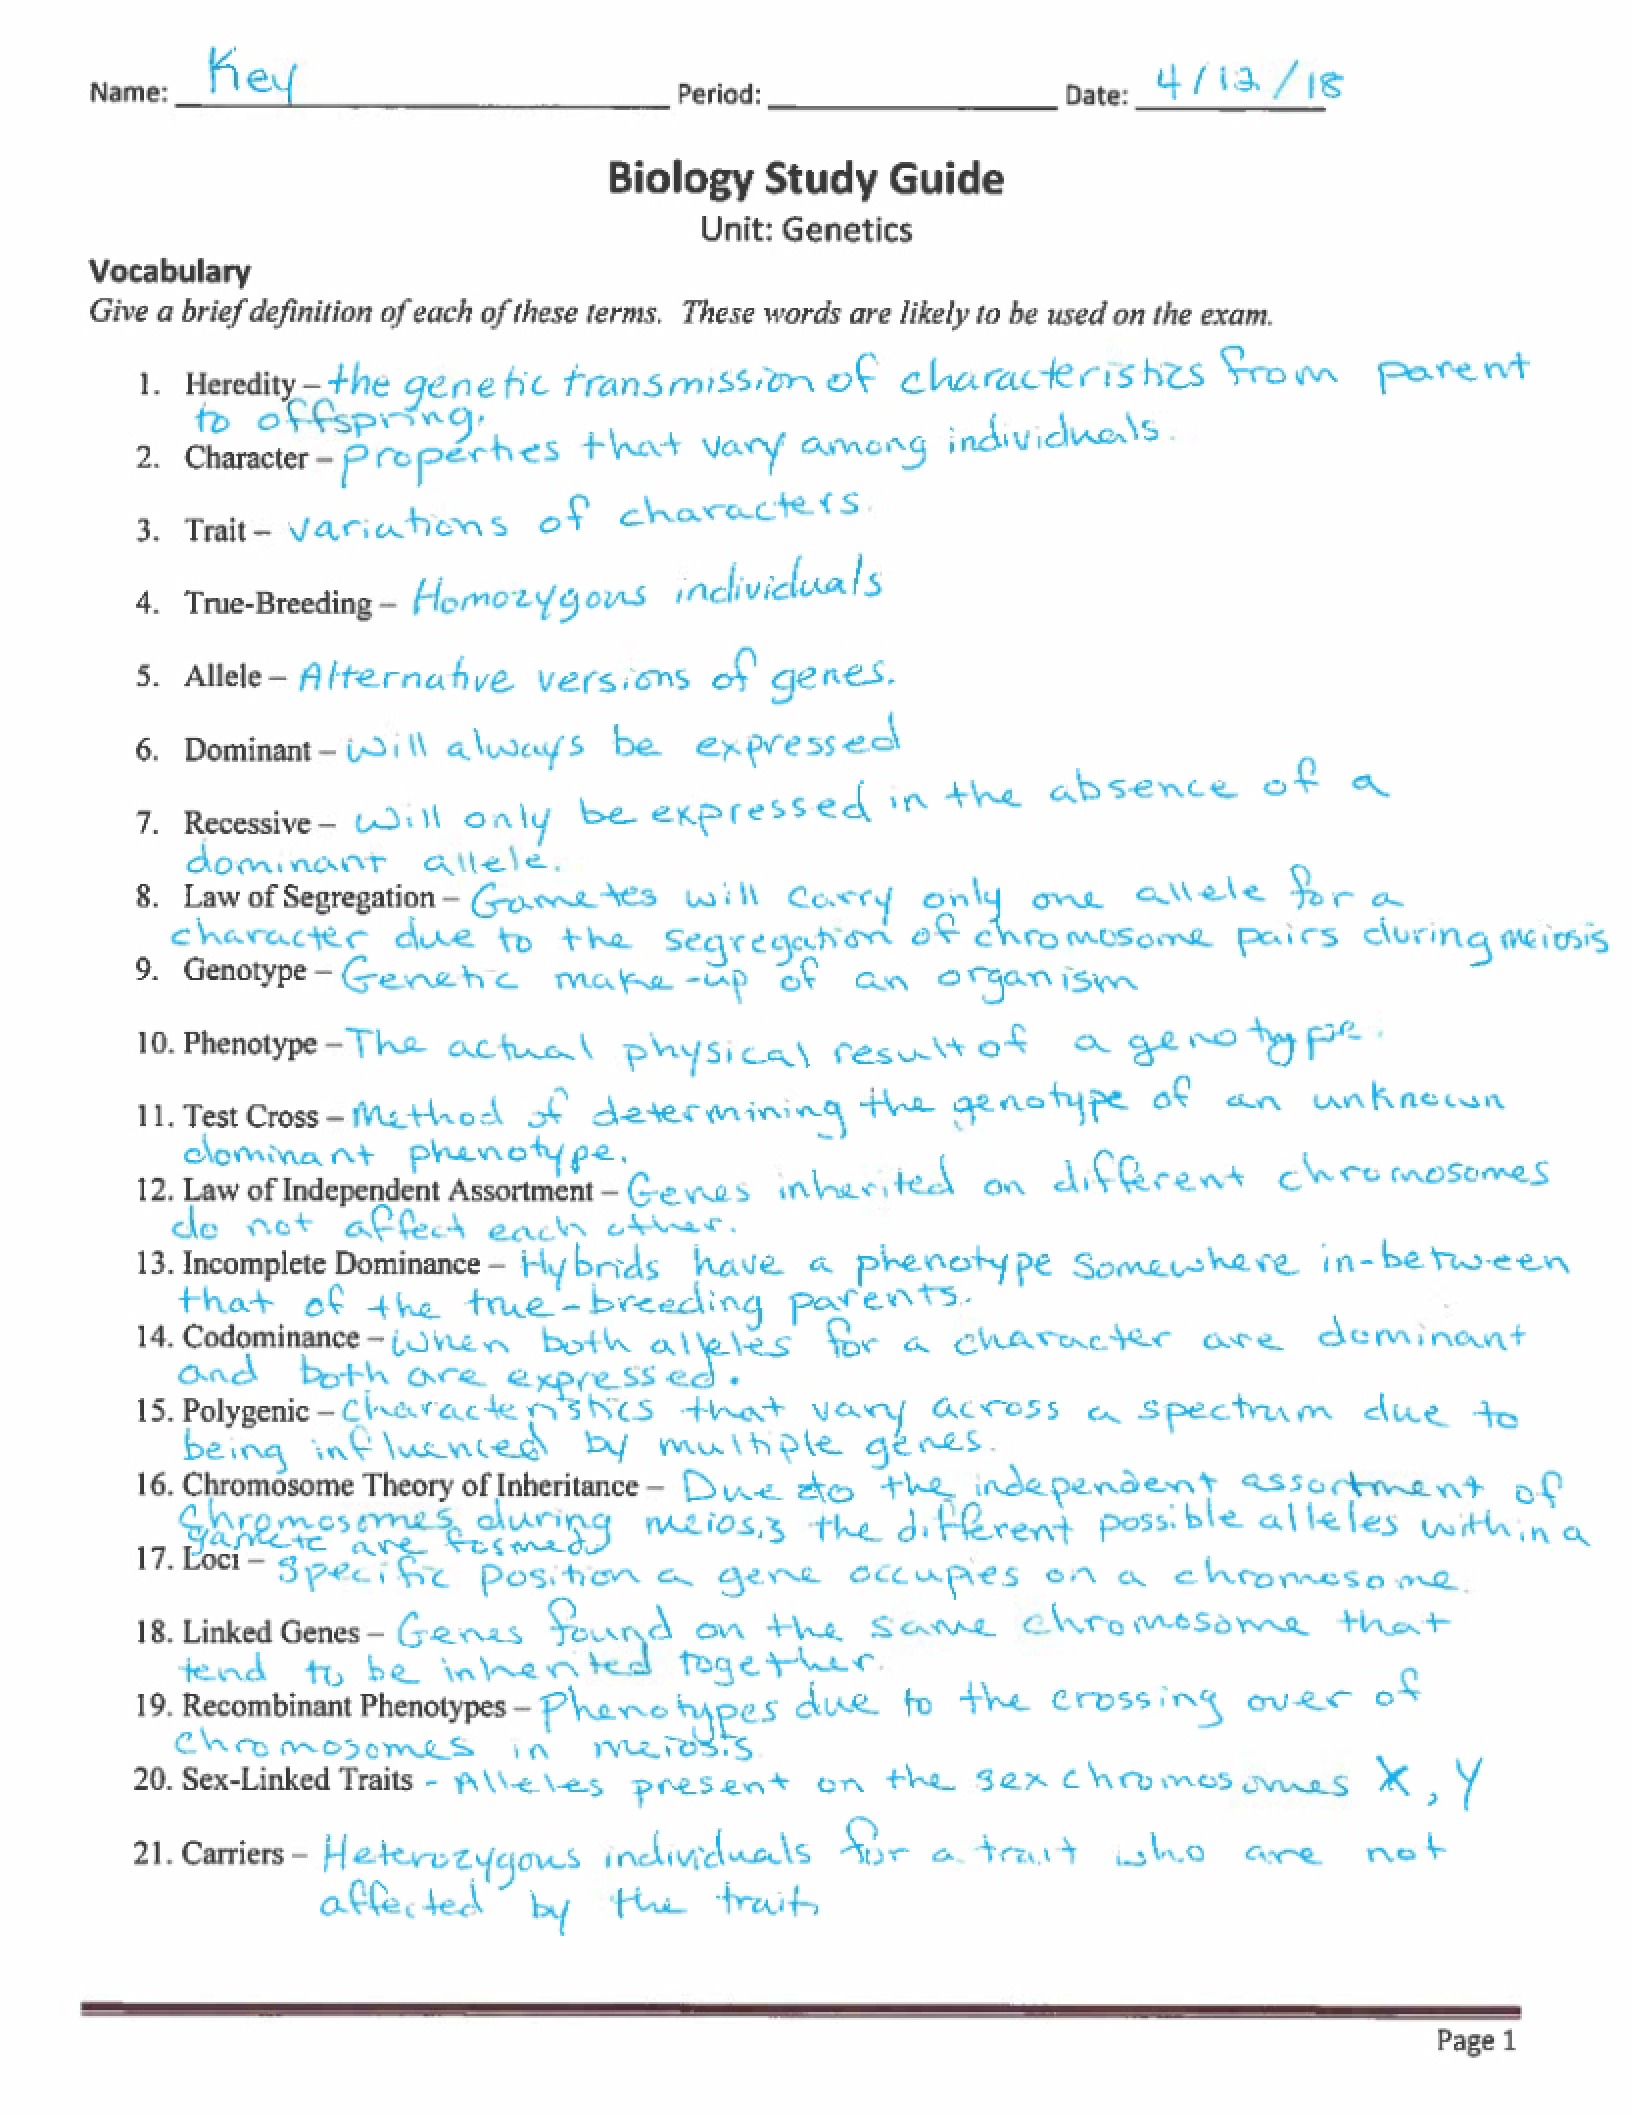 Name: Key Period: Date: 4/12/18
Biology Study Guide
Unit: Genetics
Vocabulary
Give a brief definition of each of these terms. These words are likely to be used on the exam.
1. Heredity – the genetic transmission of characteristics from parent
to offspring.
2. Character – properties that vary among individuals.
3. Trait – variations of characters.
4. True-Breeding – Homozygous individuals
5. Allele – Alternative versions of genes.
6. Dominant – will always be expressed
7. Recessive – will only be expressed in the absence of a
dominant allele.
8. Law of Segregation – Gametes will carry only one allele for a
character due to the segregation of chromosome pairs during meiosis
9. Genotype – Genetic make-up of an organism
10. Phenotype – The actual physical result of a genotype.
11. Test Cross – Method of determining the genotype of an unknown
dominant phenotype.
12. Law of Independent Assortment – Genes inherited on different chromosomes
do not affect each other.
13. Incomplete Dominance – Hybrids have a phenotype somewhere in-between
that of the true-breeding parents.
14. Codominance – when both alleles for a character are dominant
and both are expressed.
15. Polygenic – characteristics that vary across a spectrum due to
being influenced by multiple genes.
16. Chromosome Theory of Inheritance – Due to the independent assortment of
chromosomes during meiosis the different possible alleles within a
gamete are formed
17. Loci – specific position a gene occupies on a chromosome.
18. Linked Genes – Genes found on the same chromosome that
tend to be inherited together.
19. Recombinant Phenotypes – Phenotypes due to the crossing over of
chromosomes in meiosis
20. Sex-Linked Traits - Alleles present on the sex chromosomes X, Y
21. Carriers – Heterozygous individuals for a trait who are not
affected by the trait
Page 1